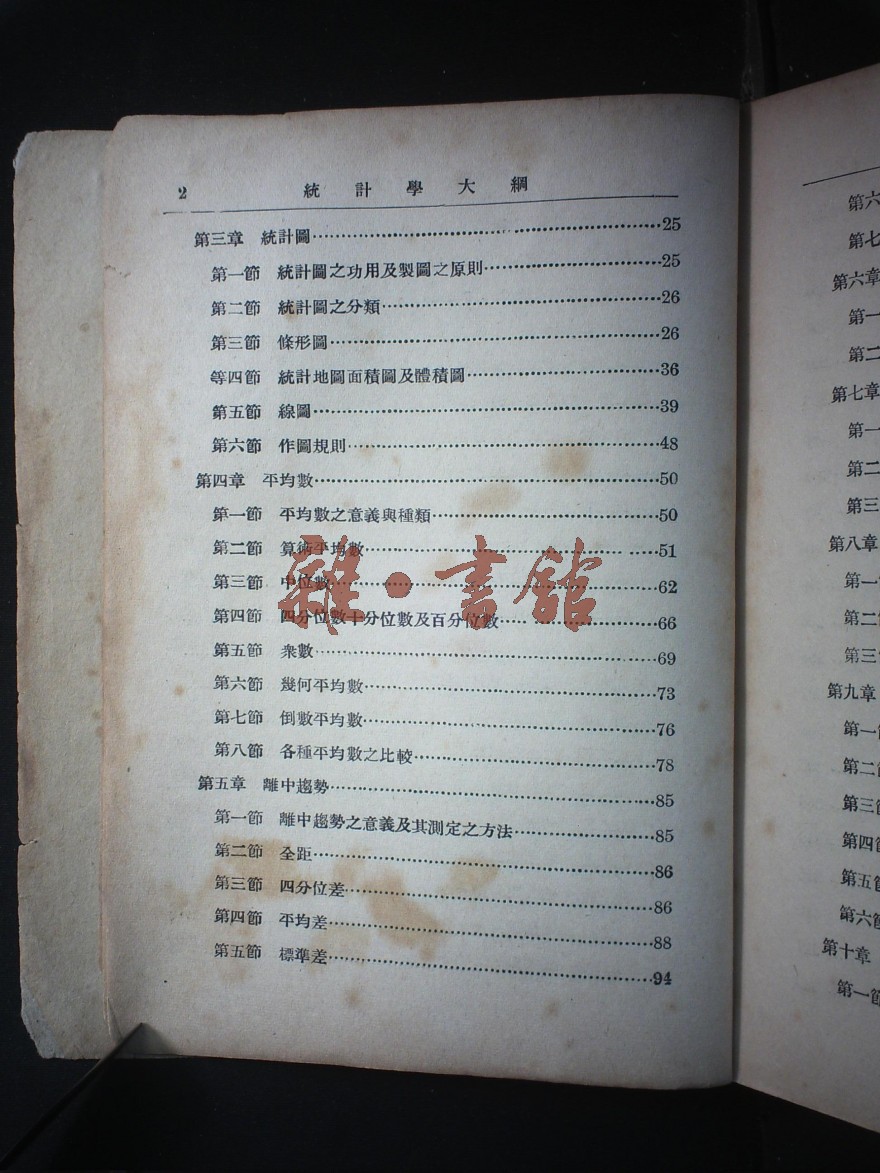 2 統計學大綱
第三章 統計圖……25
第一節 統計圖之功用及製圖之原則……25
第二節 統計圖之分類……26
第三節 條形圖……26
等四節 統計地圖面積圖及體積圖……36
第五節 線圖……39
第六節 作圖規則……48
第四章 平均數……50
第一節 平均數之意義與種類……50
第二節 算術平均數……51
第三節 中位數……62
第四節 四分位數十分位數及百分位數……66
第五節 衆數……69
第六節 幾何平均數……73
第七節 倒數平均數……76
第八節 各種平均數之比較……78
第五章 離中趨勢……85
第一節 離中趨勢之意義及其測定之方法……85
第二節 全距……86
第三節 四分位差……86
第四節 平均差……88
第五節 標準差……94
雜·書館
第六
第七
第六章
第一
第二
第七章
第一
第二
第三
第八章
第一
第二
第三
第九章
第一
第二
第三
第四
第五
第六
第十章
第一